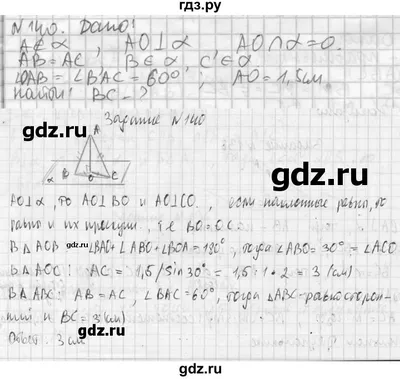 gdz.ru
N 140. Дано:
A∉α, AO⊥α AO∩α=O.
AB=AC, B∈α, C∈α
∠OAB = ∠BAC = 60°; AO=1,5см
Найти: BC-?
gdz.ru
Задание N140
A
α B O C
gdz.ru
gdz.ru
AO⊥α, то AO⊥BO и AO⊥CO., если наклонные равны, то
равны и их проекции, т.е BO=OC.
В ΔAOB ∠BAO+∠ABO+∠BOA=180°, тогда ∠ABO=30°=∠ACO
В ΔAOC: AC = 1,5/sin30° = 1,5·2 = 3 (см)
В ΔABC: AB=AC, ∠BAC=60°, тогда ∠ABC-равносторон-
ний и BC=3(см)
Ответ: 3см
gdz.ru
gdz.ru